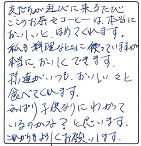 友だちが遊びに来るたび
このお茶とコーヒーは、本当に
おいしいと、ほめてくれます。
私も料理などに使っていますが
本当に、おいしくできます。
孫達がいつも、おいしいと
食べてくれます。
やはり子供なりにわかって
いるのかな?と思います。
これからもよろしくお願いします。